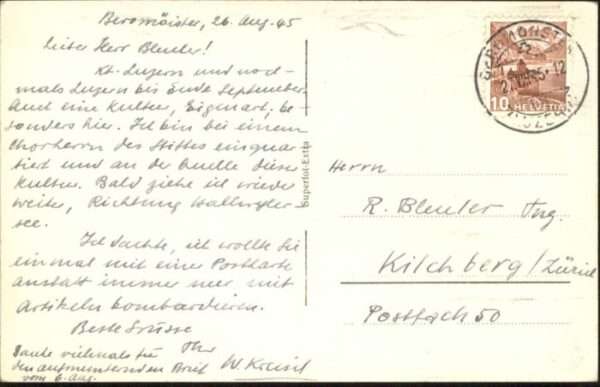 Beromünster, 26. Aug. 45
Lieber Herr Bleuler!
Kt. Luzern und noch-
mals Luzern bis Ende September.
Auch eine Kultur, Eigenart, be-
sonders hier. Ich bin bei einem
Chorherrn des Stiftes einquar-
tiert und an der Quelle dieser
Kultur. Bald ziehe ich wieder
weiter, Richtung Hallwyler-
see.
Ich dachte, ich wollte Sie
einmal mit einer Postkarte
anstatt immer nur mit
Artikeln bombardieren.
Beste Grüsse
Ihr
Danke vielmals für
den aufmunternden Brief
vom 6. Aug.
Superfot-Extra
10 HELVETIA
Herrn
R. Bleuler Ing.
Kilchberg/Zürich
Postfach 50